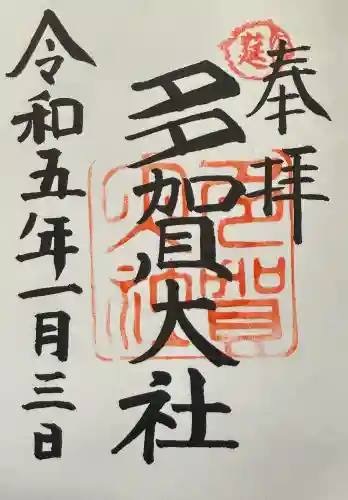 奉拝
多賀大社
令和五年一月三日
多賀大社
莚